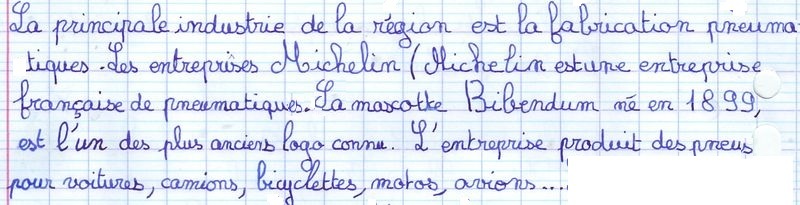 La principale industrie de la région est la fabrication pneuma
tiques. Les entreprises Michelin (Michelin est une entreprise
française de pneumatiques. La mascotte Bibendum né en 1899,
est l'un des plus anciens logo connu. L'entreprise produit des pneus
pour voitures, camions, bicyclettes, motos, avions....